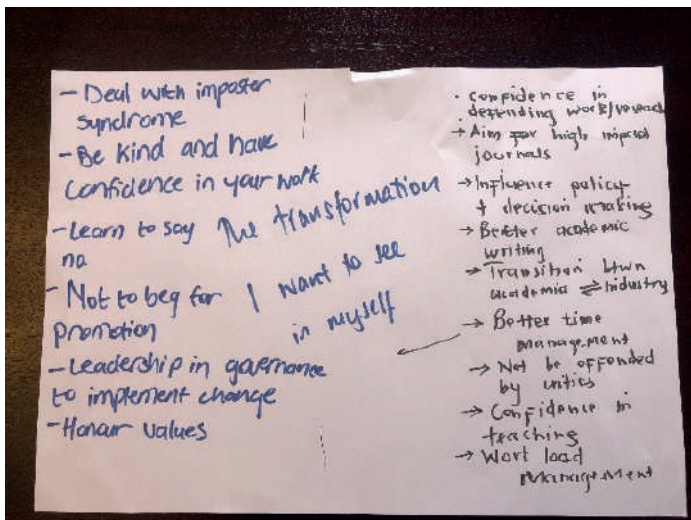 - Deal with imposter
syndrome
- Be kind and have
confidence in your work
- Learn to say
no
- Not to beg for
promotion
- Leadership in governance
to implement change
- Honour values
The transformation
I want to see
in myself
• confidence in
defending work/research
→ Aim for high impact
journals
→ Influence policy
+ decision making
→ Better academic
writing
→ Transition btwn
academia ⇌ industry
→ Better time
management
→ Not be offended
by critics
→ Confidence in
teaching
→ Work load
management